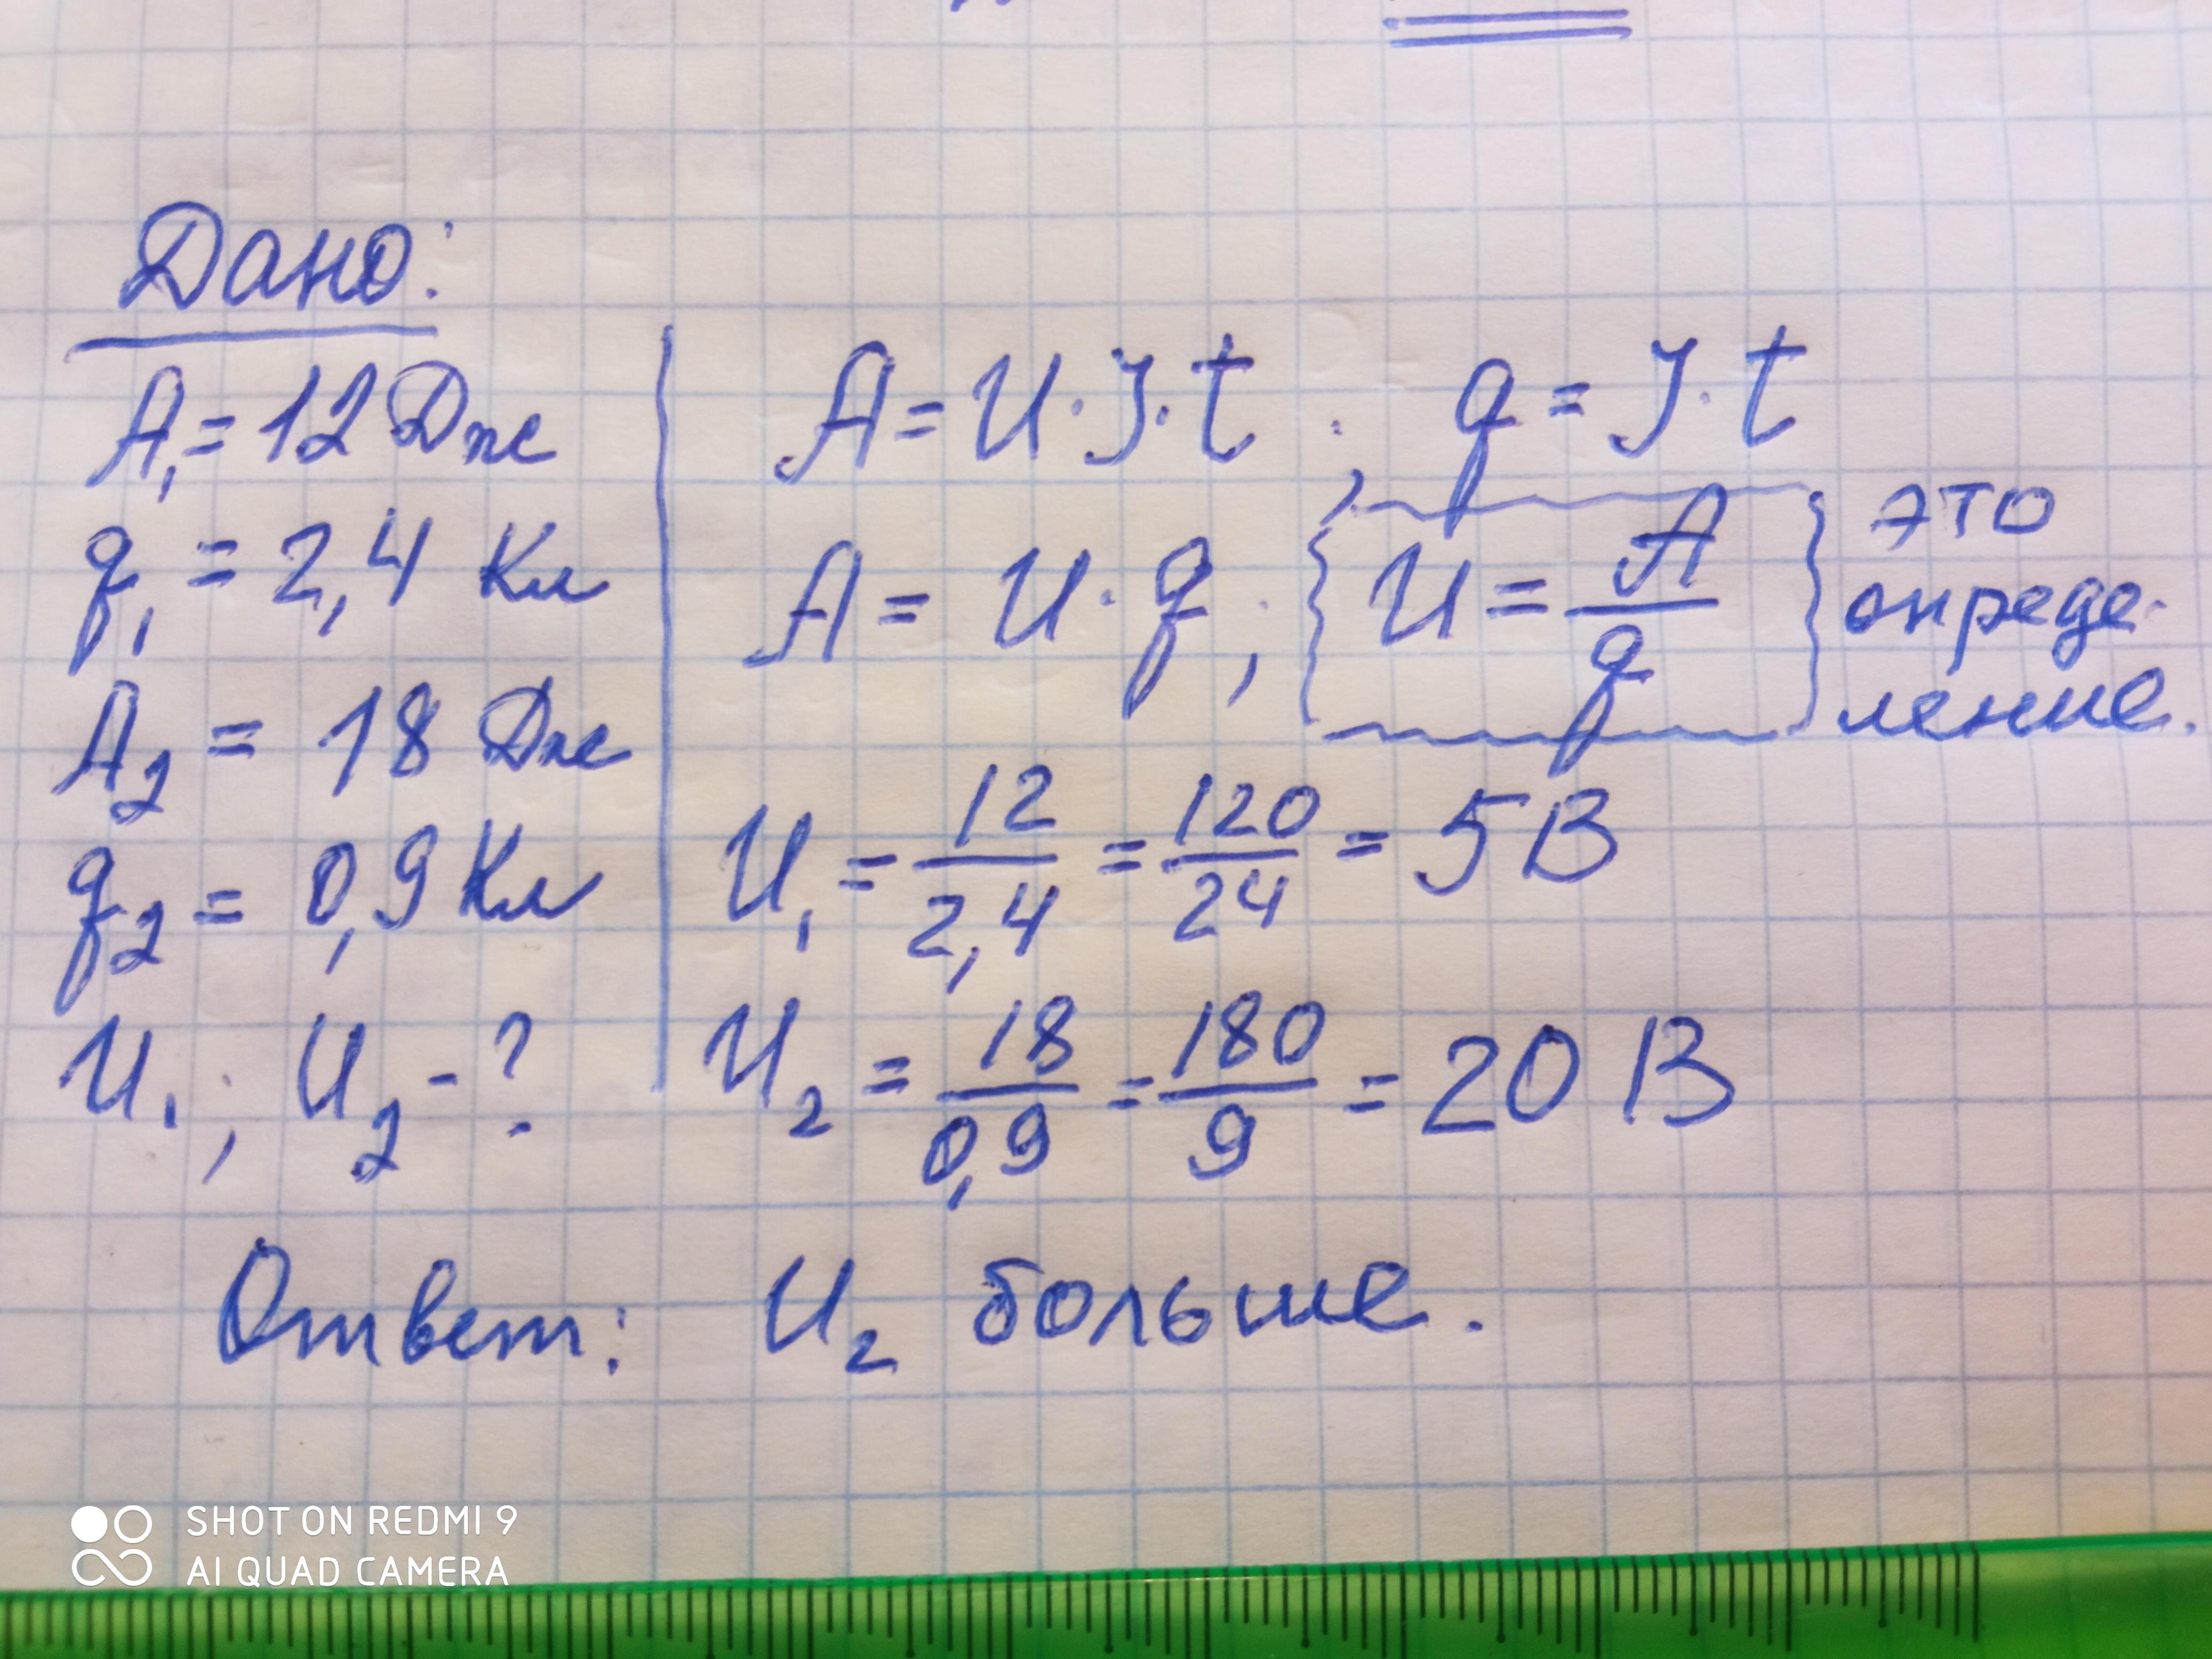 Дано:
A₁ = 12 Дж
q₁ = 2,4 Кл
A₂ = 18 Дж
q₂ = 0,9 Кл
U₁; U₂ - ?
A = U · I · t ; q = I · t
A = U · q ; U = A/q это
опреде-
ление.
U₁ = 12/2,4 = 120/24 = 5 В
U₂ = 18/0,9 = 180/9 = 20 В
Ответ: U₂ больше.
SHOT ON REDMI 9
AI QUAD CAMERA